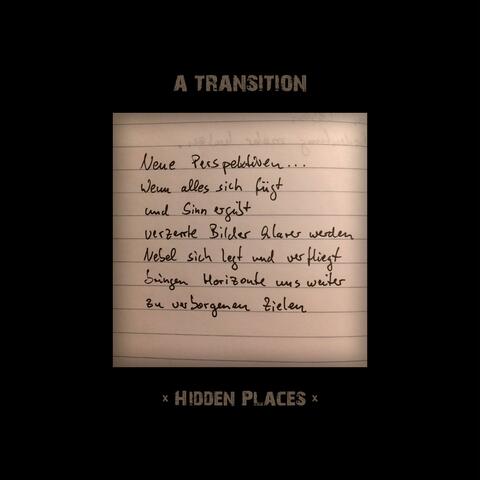 A TRANSITION
Neue Perspektiven...
Wenn alles sich fügt
und Sinn ergibt
verzerrte Bilder klarer werden
Nebel sich legt und verfliegt
bringen Horizonte uns weiter
zu verborgenen Zielen
x HIDDEN PLACES x